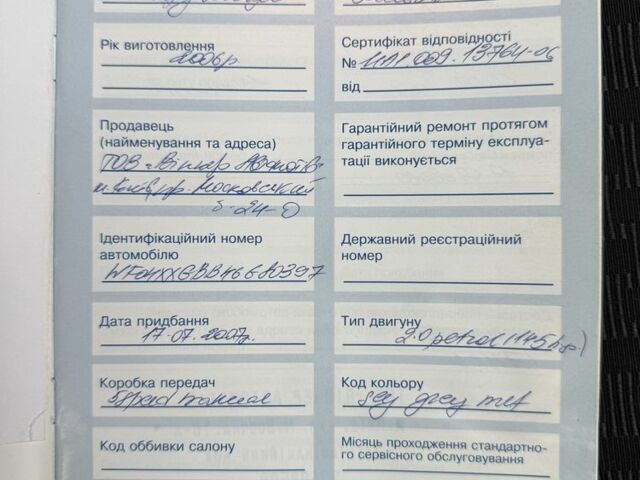 Рік виготовлення
2006р
Сертифікат відповідності
№ UA1.009.13764-06
від
Продавець
(найменування та адреса)
ТОВ "Віннер
м. Київ, пр. Московський
24-
Гарантійний ремонт протягом
гарантійного терміну експлуа-
тації виконується
Ідентифікаційний номер
автомобілю
WF04XXGBB46G80397
Державний реєстраційний
номер
Дата придбання
17.07.2007р.
Тип двигуну
2.0 petrol (145hp)
Коробка передач
5speed manual
Код кольору
sey grey met
Код оббивки салону
Місяць проходження стандартно-
го сервісного обслуговування